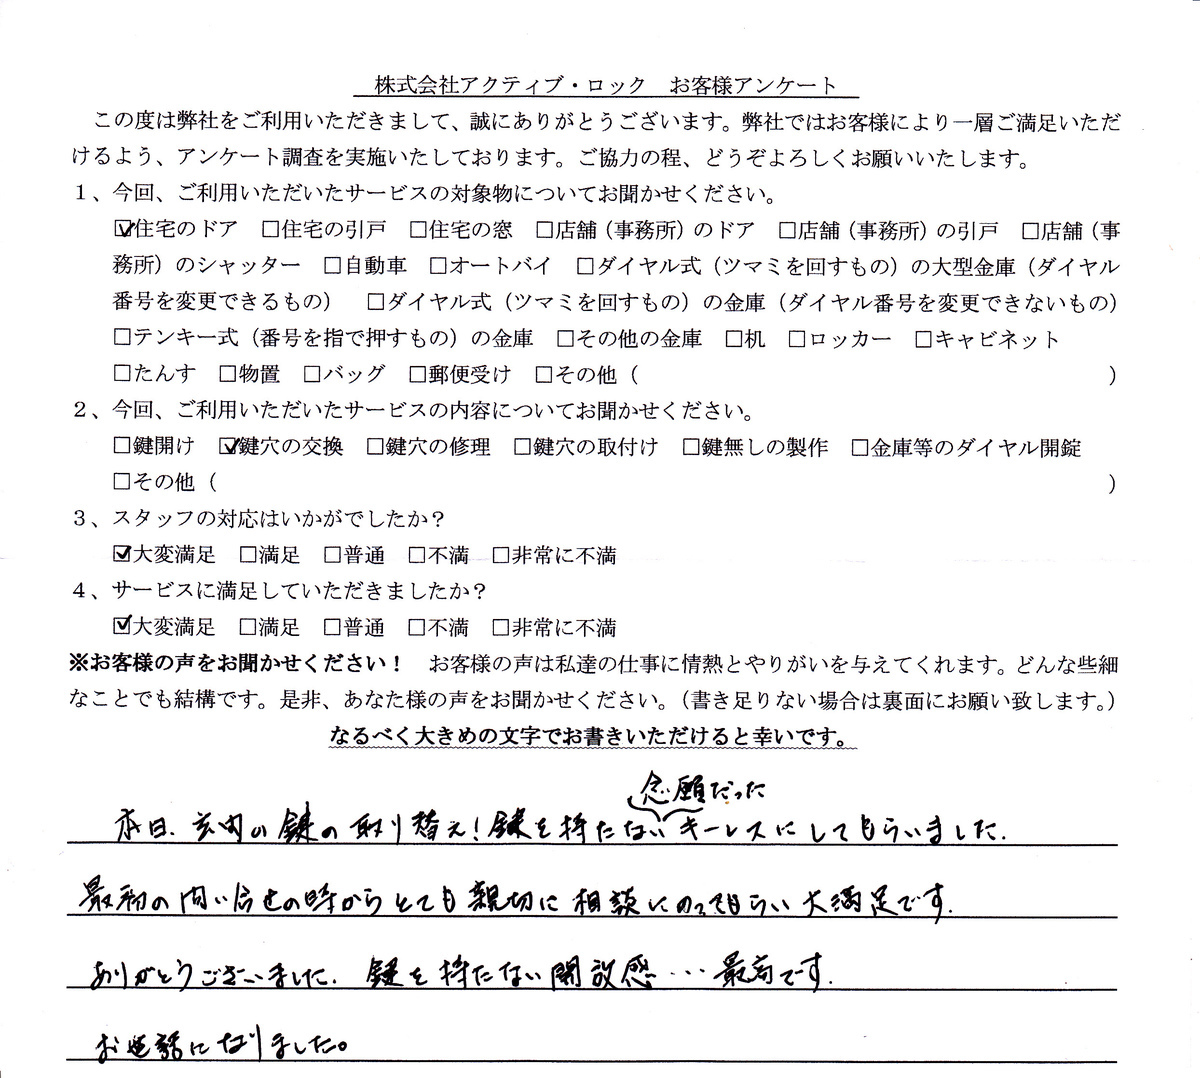 株式会社アクティブ・ロック　お客様アンケート
この度は弊社をご利用いただきまして、誠にありがとうございます。弊社ではお客様により一層ご満足いただ
けるよう、アンケート調査を実施いたしております。ご協力の程、どうぞよろしくお願いいたします。
１、今回、ご利用いただいたサービスの対象物についてお聞かせください。
☑住宅のドア　□住宅の引戸　□住宅の窓　□店舗（事務所）のドア　□店舗（事務所）の引戸　□店舗（事
務所）のシャッター　□自動車　□オートバイ　□ダイヤル式（ツマミを回すもの）の大型金庫（ダイヤル
番号を変更できるもの）　□ダイヤル式（ツマミを回すもの）の金庫（ダイヤル番号を変更できないもの）
□テンキー式（番号を指で押すもの）の金庫　□その他の金庫　□机　□ロッカー　□キャビネット
□たんす　□物置　□バッグ　□郵便受け　□その他（　　　　　　　　　　）
２、今回、ご利用いただいたサービスの内容についてお聞かせください。
□鍵開け　☑鍵穴の交換　□鍵穴の修理　□鍵穴の取付け　□鍵無しの製作　□金庫等のダイヤル開錠
□その他（　　　　　　　　　　）
３、スタッフの対応はいかがでしたか？
☑大変満足　□満足　□普通　□不満　□非常に不満
４、サービスに満足していただきましたか？
☑大変満足　□満足　□普通　□不満　□非常に不満
※お客様の声をお聞かせください！　お客様の声は私達の仕事に情熱とやりがいを与えてくれます。どんな些細
なことでも結構です。是非、あなた様の声をお聞かせください。（書き足りない場合は裏面にお願い致します。）
なるべく大きめの文字でお書きいただけると幸いです。
念願だった
本日、玄関の鍵の取り替え！鍵を持たないキーレスにしてもらいました。
最初の問い合せの時からとても親切に相談にのってもらい大満足です。
ありがとうございました。鍵を持たない開放感…最高です。
お世話になりました。